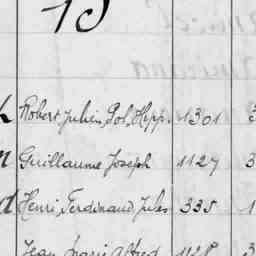 15
Robert Julien, Pol, Hipp. 1301 3
Guillaume Joseph 1127 3
Henri Ferdinand Jules 335 1
Jean Marie Alfred 1128 3